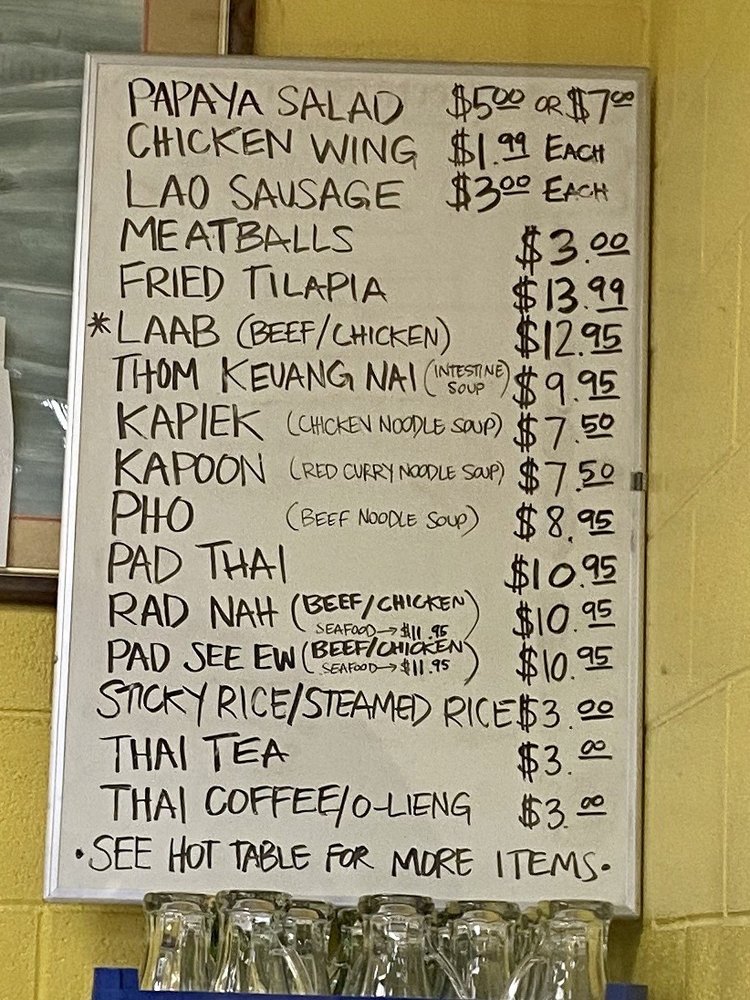 PAPAYA SALAD $5.00 OR $7.00
CHICKEN WING $1.99 EACH
LAO SAUSAGE $3.00 EACH
MEATBALLS $3.00
FRIED TILAPIA $13.99
*LAAB (BEEF/CHICKEN) $12.95
THOM KEUANG NAI (INTESTINE SOUP) $9.95
KAPIEK (CHICKEN NOODLE SOUP) $7.50
KAPOON (RED CURRY NOODLE SOUP) $7.50
PHO (BEEF NOODLE SOUP) $8.95
PAD THAI $10.95
RAD NAH (BEEF/CHICKEN) $10.95
SEAFOOD→$11.95
PAD SEE EW (BEEF/CHICKEN) $10.95
SEAFOOD→$11.95
STICKY RICE/STEAMED RICE $3.00
THAI TEA $3.00
THAI COFFEE/O-LIENG $3.00
•SEE HOT TABLE FOR MORE ITEMS•